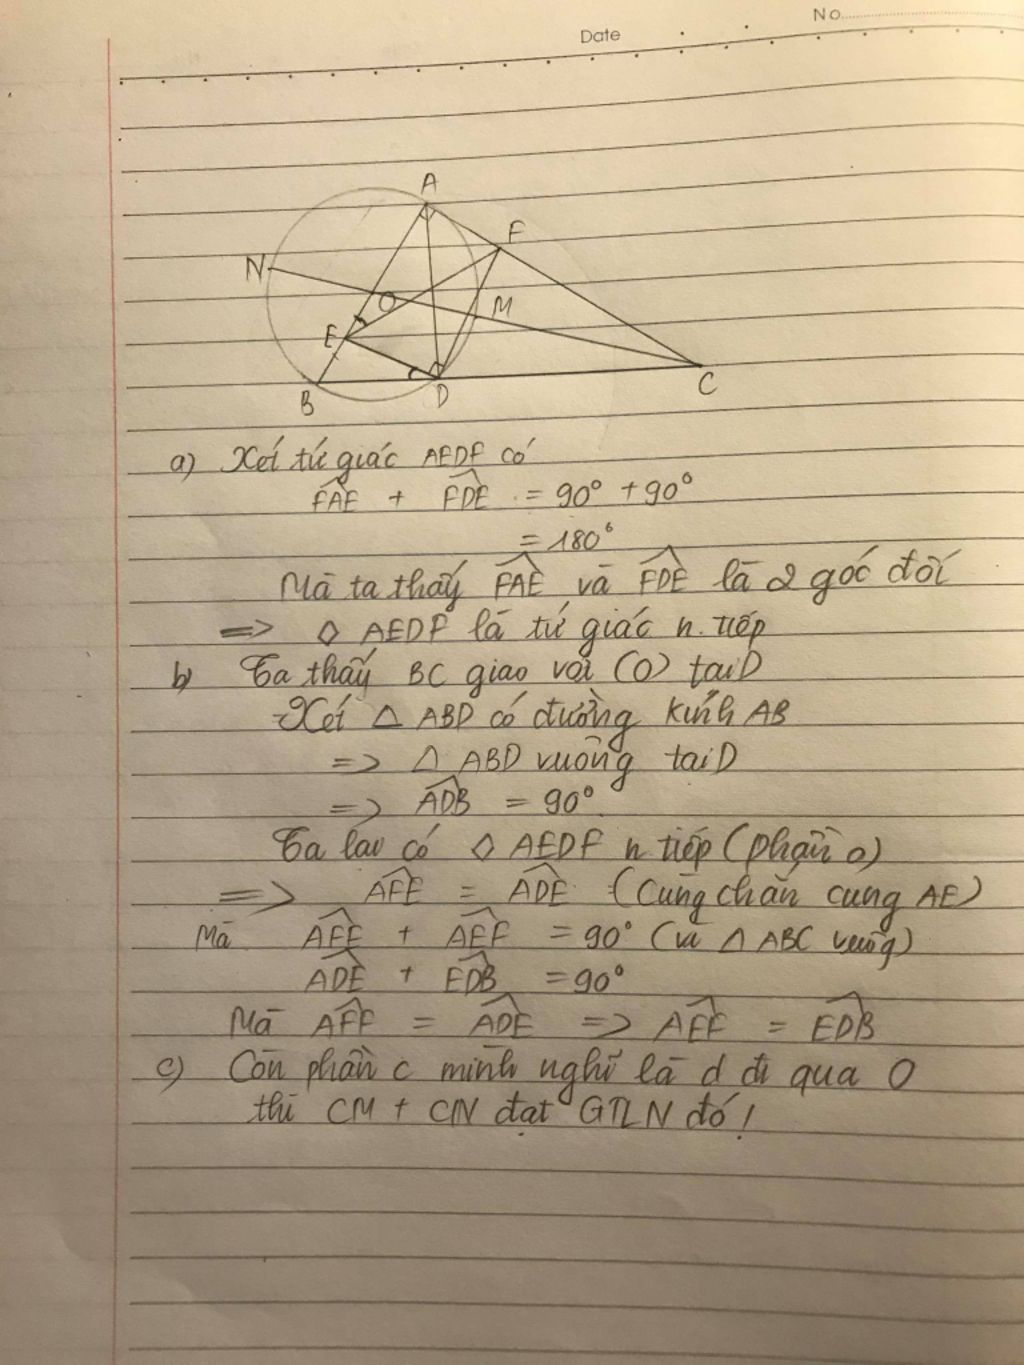 No
Date
A
F
N
O
M
E
B
D
C
a) Xét tứ giác AEDF có
FAE + FDE = 90° + 90°
= 180°
Mà ta thấy FAE và FDE là 2 góc đối
=> ◇ AEDF là tứ giác n. tiếp
b) Ta thấy BC giao với (O) tại D
Xét △ ABD có đường kính AB
=> △ ABD vuông tại D
=> ADB = 90°
Ta lại có ◇ AEDF n tiếp (phần a)
=> AFE = ADE (Cùng chắn cung AE)
Mà AFE + AEF = 90° (vì △ ABC vuông)
ADE + EDB = 90°
Mà AFE = ADE => AEF = EDB
c) Còn phần c mình nghĩ là d đi qua O
thì CM + CN đạt GTLN đó!